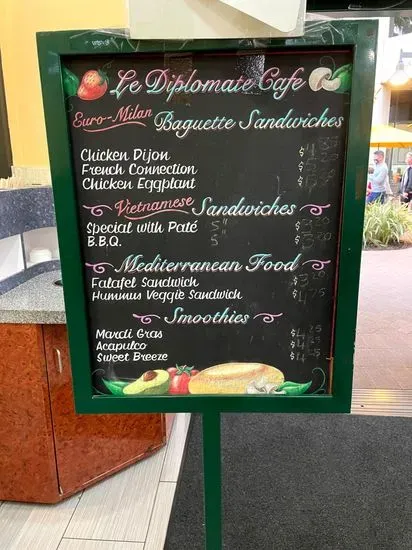 Le Diplomate Cafe
Euro-Milan
Baguette Sandwiches
Chicken Dijon
French Connection
Chicken Eggplant
Vietnamese Sandwiches
Special with Paté 5"
B.B.Q. 5"
Mediterranean Food
Falafel Sandwich
Hummus Veggie Sandwich
Smoothies
Mardi Gras
Acapulco
Sweet Breeze